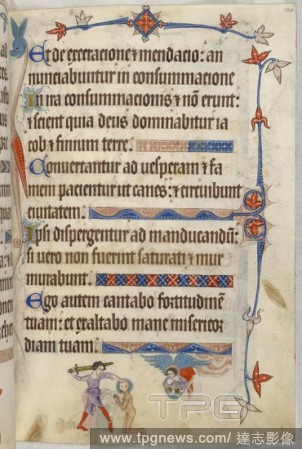 Et de execracione & mendacio: an
nunciabuntur in consummacione
In ira consummacionis & nō erunt:
& scient quia deus dominabitur ia
cob & finium terre.
Convertantur ad vesperam & fa
mem pacientur ut canes: & circuibunt
civitatem.
Ipsi dispergentur ad manducandū:
si vero non fuerint saturati & mur
murabunt.
Ego autem cantabo fortitudinē
tuam: & exaltabo mane misericor
diam tuam.
TPG
www.tpgnews.com/ 達志影像